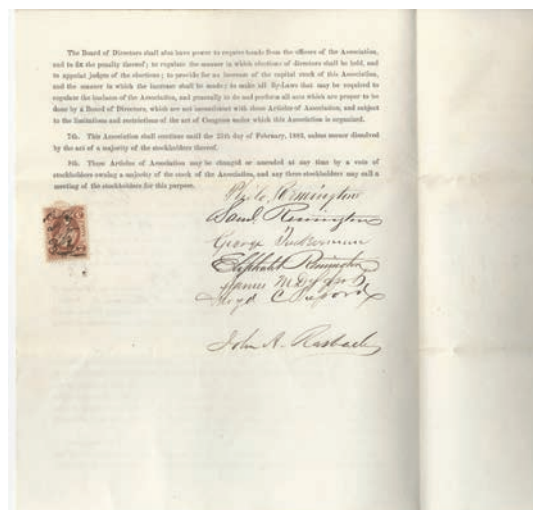 The Board of Directors shall also have power to require bonds from the officers of the Association,
and to fix the penalty thereof; to regulate the manner in which elections of directors shall be held, and
to appoint judges of the elections; to provide for an increase of the capital stock of this Association,
and the manner in which the increase shall be made; to make all By-Laws that may be required to
regulate the business of the Association, and generally to do and perform all acts which are proper to be
done by a Board of Directors, which are not inconsistent with these Articles of Association, and subject
to the limitations and restrictions of the act of Congress under which this Association is organized.
7th. This Association shall continue until the 25th day of February, 1882, unless sooner dissolved
by the act of a majority of the stockholders thereof.
8th. These Articles of Association may be changed or amended at any time by a vote of
stockholders owning a majority of the stock of the Association, and any three stockholders may call a
meeting of the stockholders for this purpose.
Philo Remington
Saml. Remington
George Tuckerman
Eliphalet Remington
James M.
Floyd C.
John A. Rasbach